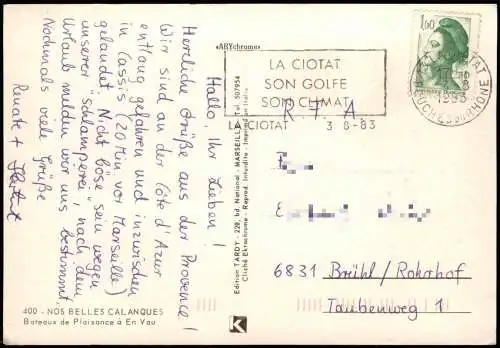 Hallo, Ihr Lieben!
Herzliche Grüße aus der Provence!
Wir sind an der Côte d'Azur
entlang gefahren und inzwischen
in Cassis (20 Min vor Marseille)
gelandet. Nicht böse sein wegen
unserer "Schlamperei", nach dem
Urlaub melden wir uns bestimmt.
Nochmals viele Grüße
Renate +
400 - NOS BELLES CALANQUES
Bateaux de Plaisance à En Vau
«ABYchrome»
Edition TARDY - 228, bd National - MARSEILLE - Tel. 507954
Cliché Ektachrome - Reprod. Interdite - Imprimé en Italie
K
LA CIOTAT
SON GOLFE
SON CLIMAT
R 7 A
LA CIOTAT 3-8-83
1,60
1983
BOUCHES DU RHÔNE
6831 Brühl/Rohrhof
Taubenweg 1